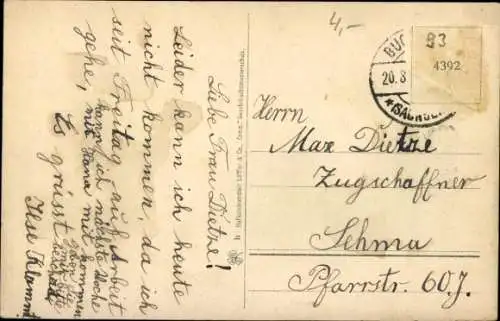 4,-
BUC
20.8
*(SACHSE
93
4392
Herrn
Max Dietze
Zugschaffner
Sehma
Pfarrstr. 60 J.
Liebe Frau Dietze!
Leider kann ich heute
nicht kommen, da ich
seit Freitag auf Arbeit
gehe, kann ich nächste Woche
mit Hana mit kommen
Es grüsst
Ilse Klamm